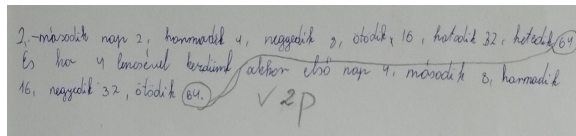 2, -második nap 2, harmadik 4, negyedik 8, ötödik 16, hatodik 32, hetedik 64
És ha 4 lencsével kezdünk akkor első nap 4, második 8, harmadik
16, negyedik 32, ötödik 64.
√ 2p